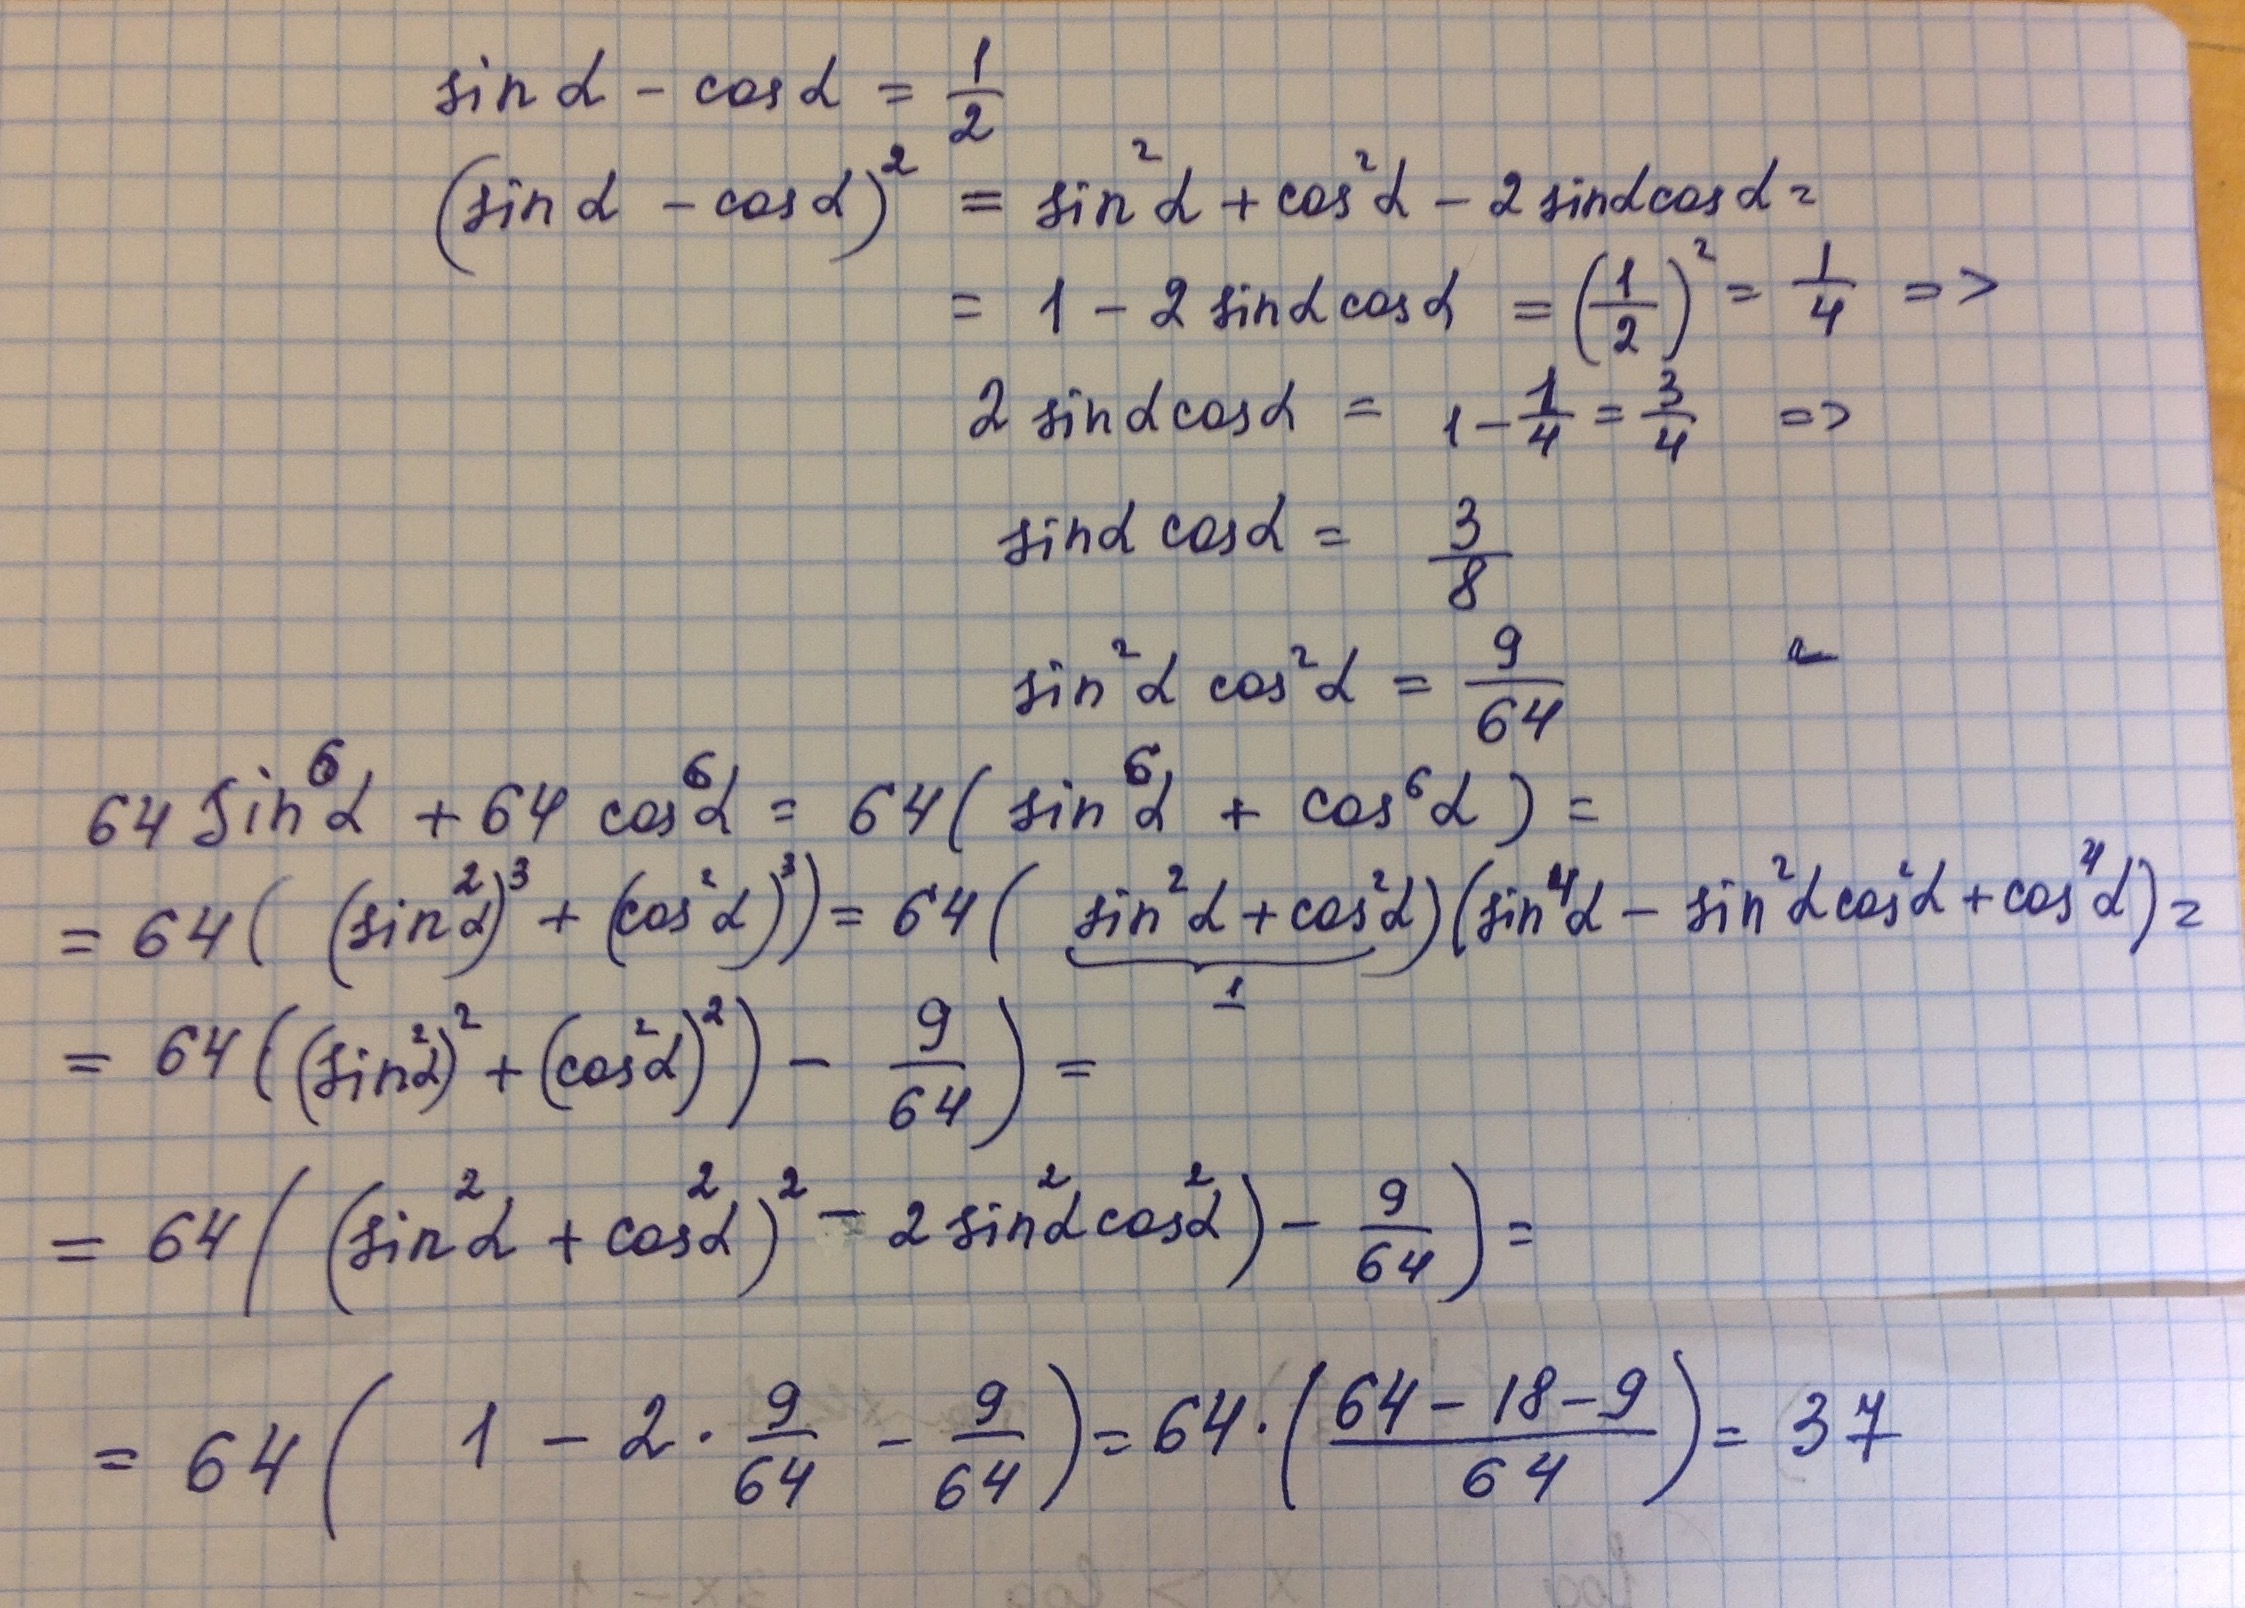 sin α - cos α = 1/2
(sin α - cos α)² = sin²α + cos²α - 2 sin α cos α =
= 1 - 2 sin α cos α = (1/2)² = 1/4 =>
2 sin α cos α = 1 - 1/4 = 3/4 =>
sin α cos α = 3/8
sin²α cos²α = 9/64
64 sin⁶α + 64 cos⁶α = 64( sin⁶α + cos⁶α ) =
= 64( (sin²α)³ + (cos²α)³) = 64( sin²α + cos²α)(sin⁴α - sin²α cos²α + cos⁴α) =
1
= 64((sin²α)² + (cos²α)²) - 9/64) =
= 64( (sin²α + cos²α)² - 2 sin²α cos²α) - 9/64) =
= 64( 1 - 2 · 9/64 - 9/64) = 64 · (64 - 18 - 9/64) = 37